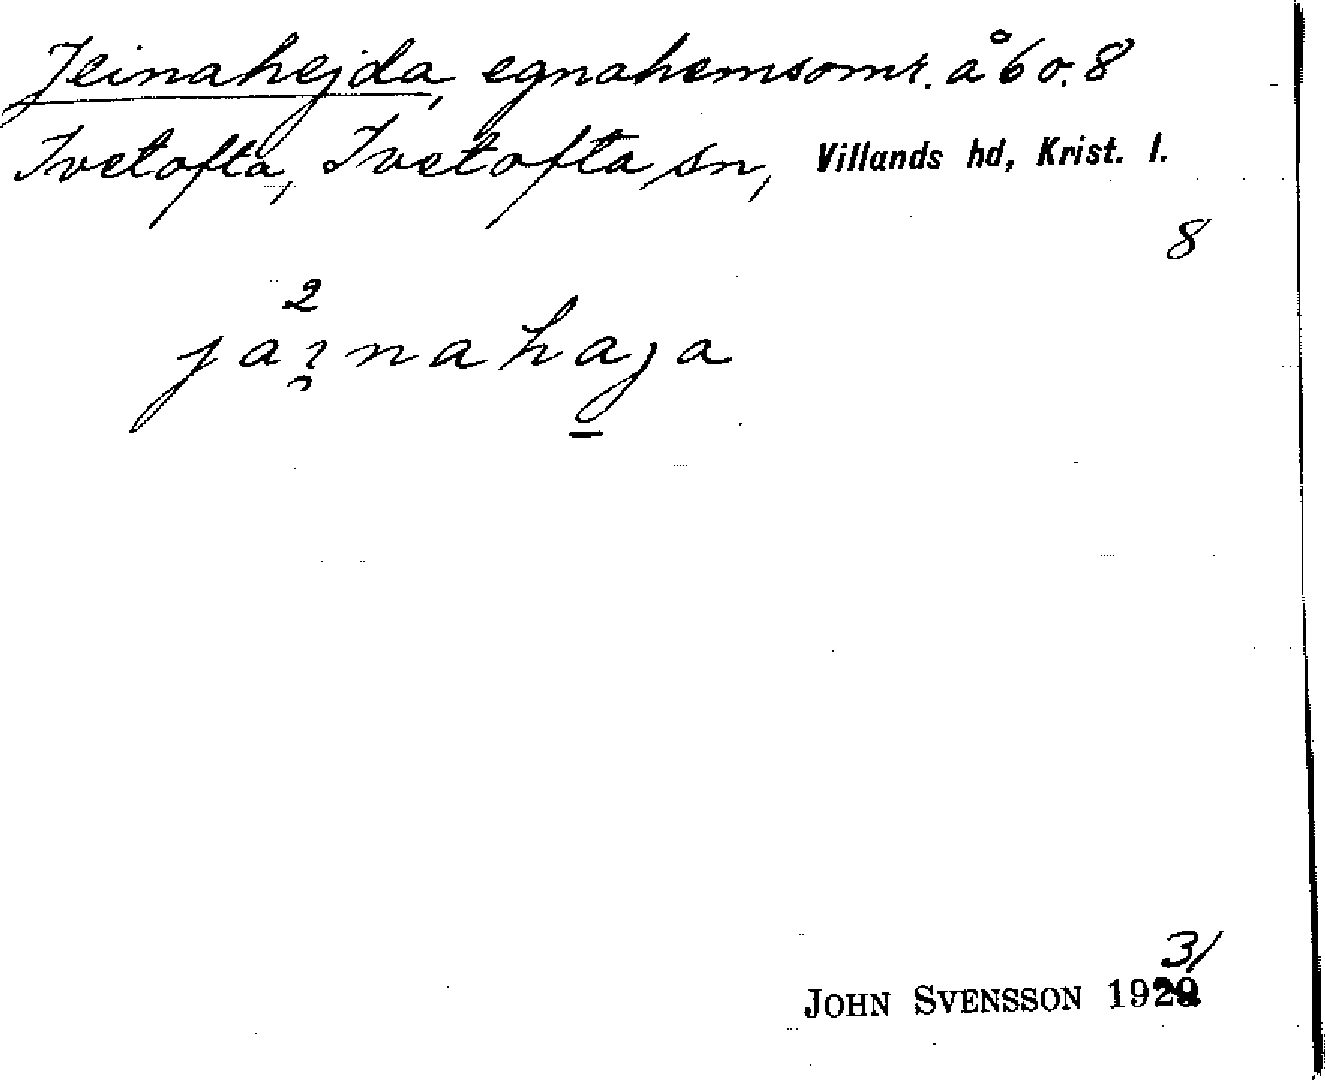 Jeinahejda, egnahemsomr. å 6 o. 8
Ivetofta, Ivetofta sn, Villands hd, Krist. l.
8
2
jaɿ̯nahaja
31
JOHN SVENSSON 1929